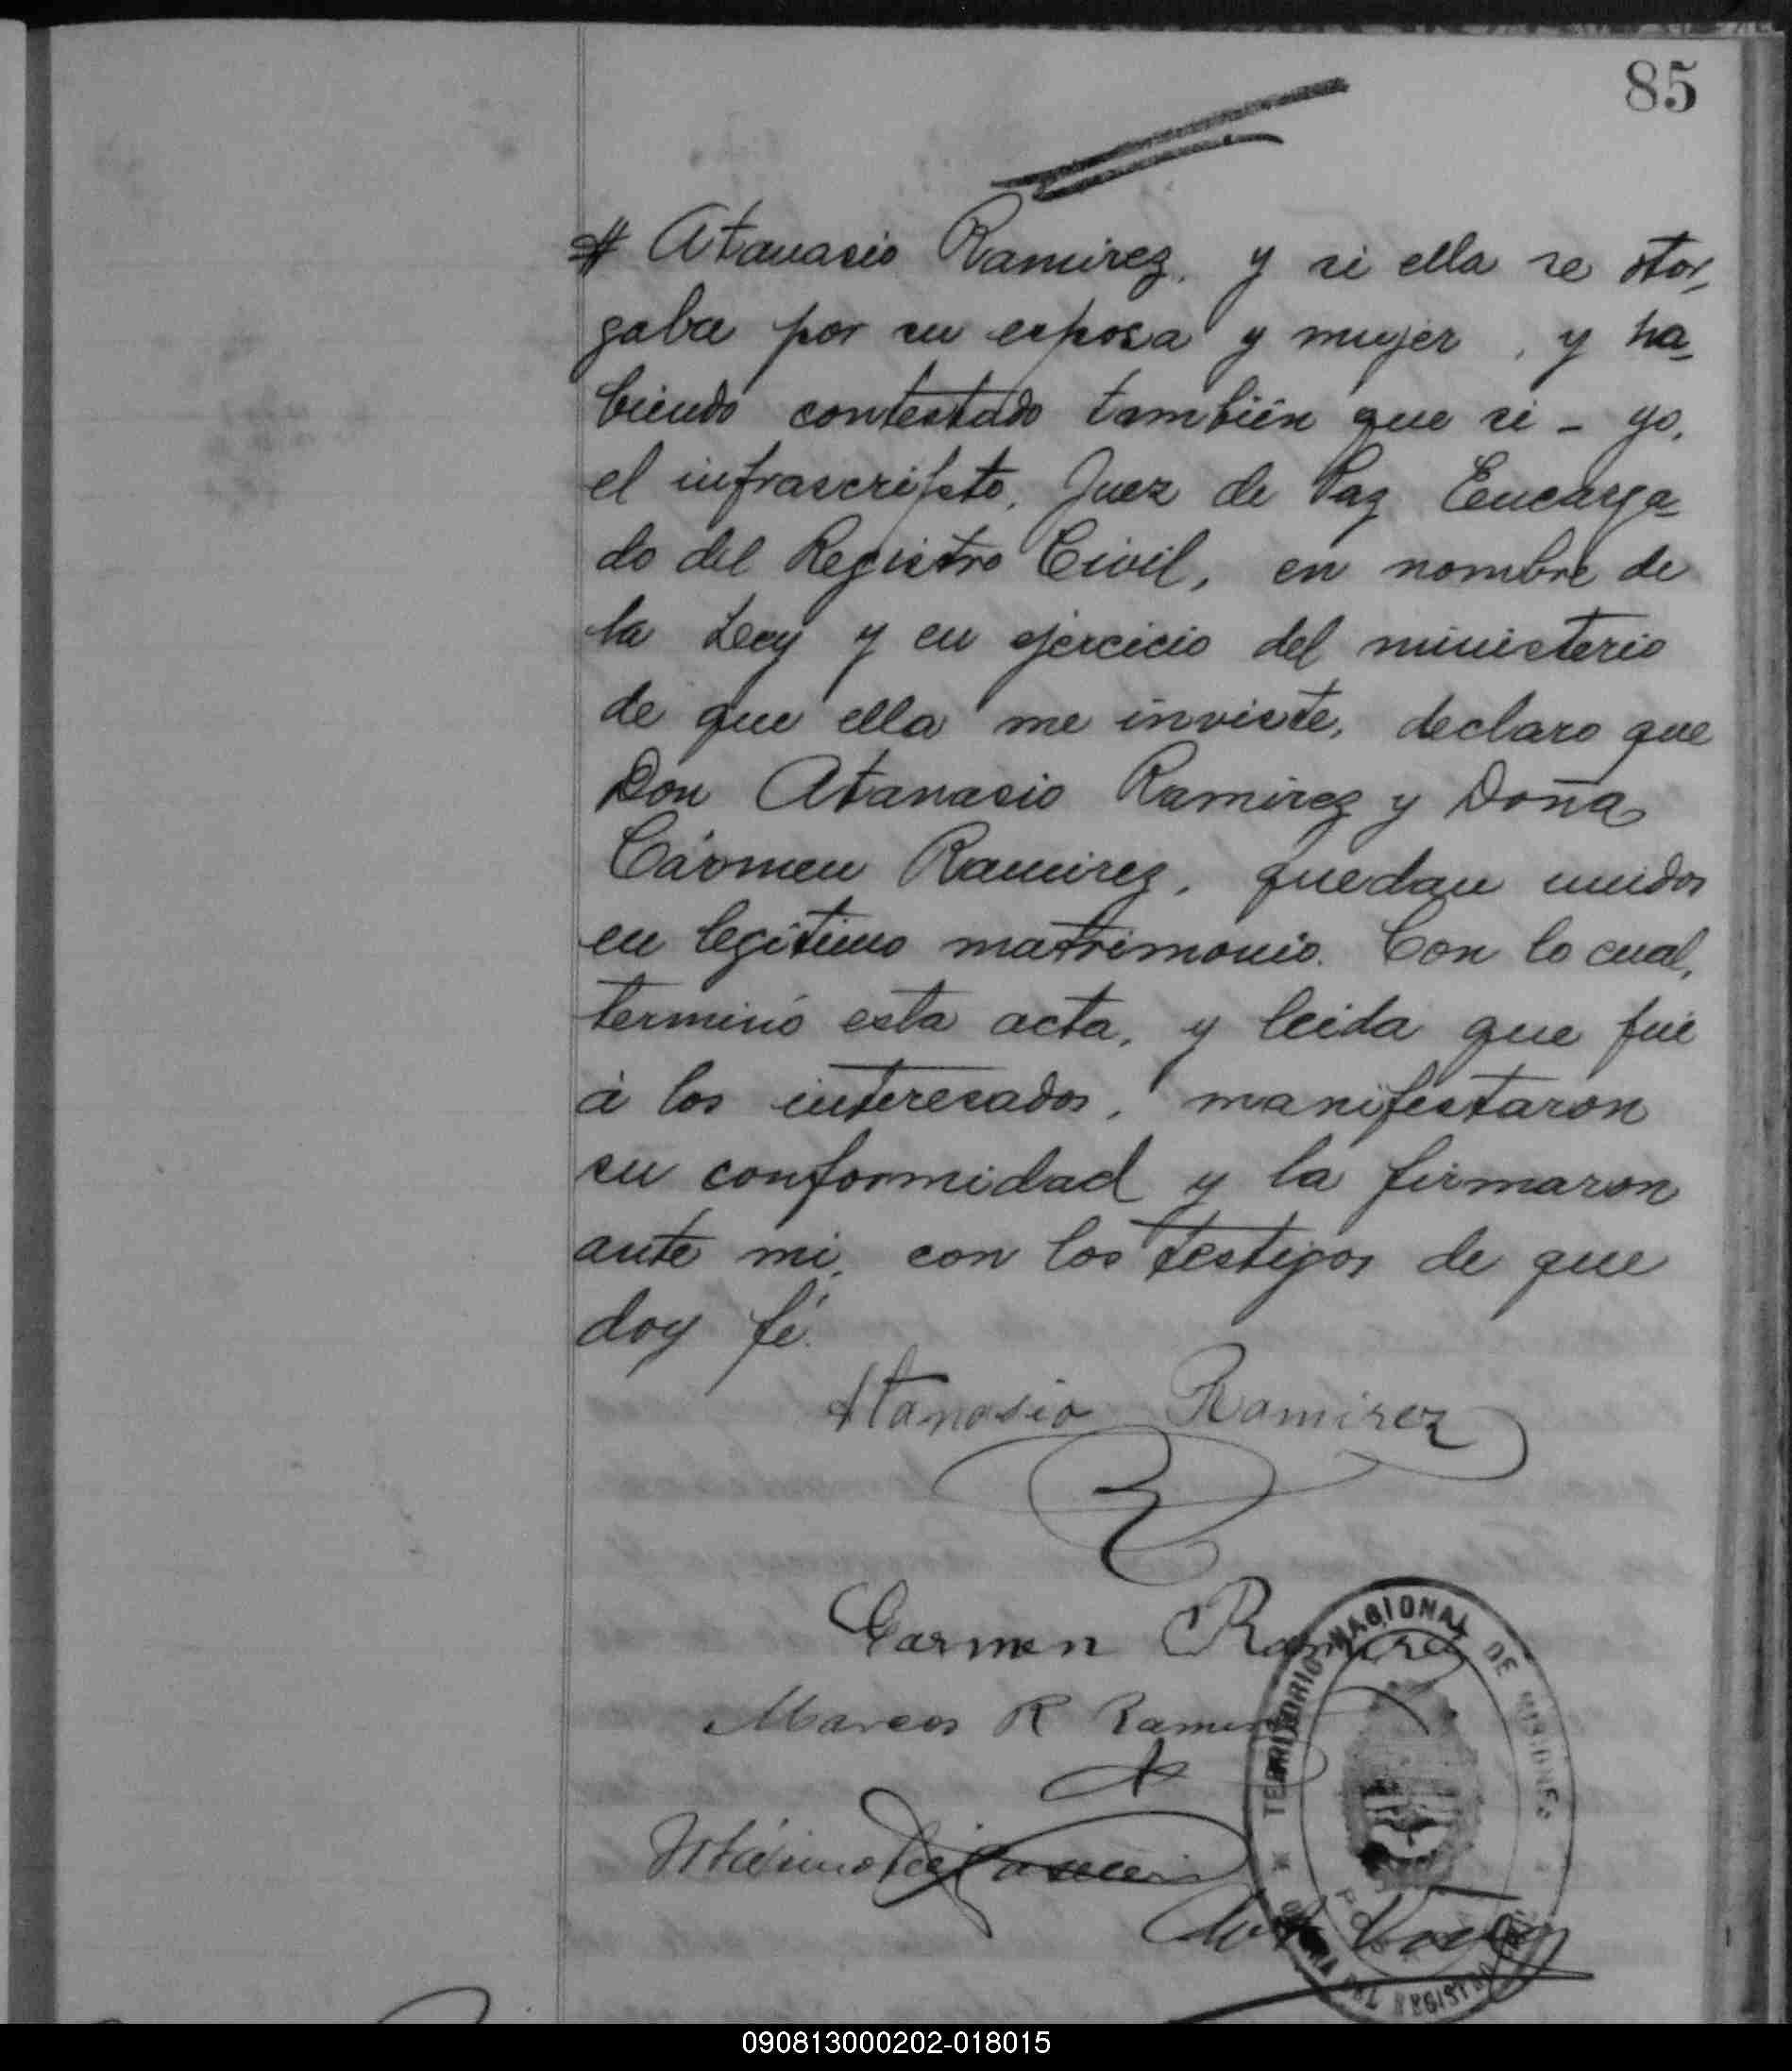 85
# Atanasio Ramirez, y si ella se otor-
gaba por su esposa y mujer, y ha-
biendo contestado también que si - yo,
el infrascripto, Juez de Paz Encarga-
do del Registro Civil, en nombre de
la Ley y en ejercicio del ministerio
de que ella me inviste, declaro que
Don Atanasio Ramirez y Doña
Cármen Ramirez, quedan unidos
en legitimo matrimonio. Con lo cual,
terminó esta acta, y leida que fué
á los interesados, manifestaron
su conformidad y la firmaron
ante mi, con los testigos de que
doy fé.
Atanasio Ramirez
Carmen Ramirez
Marcos R Ramirez
TERRITORIO NACIONAL DE MISIONES
DEL REGISTRO
090813000202-018015